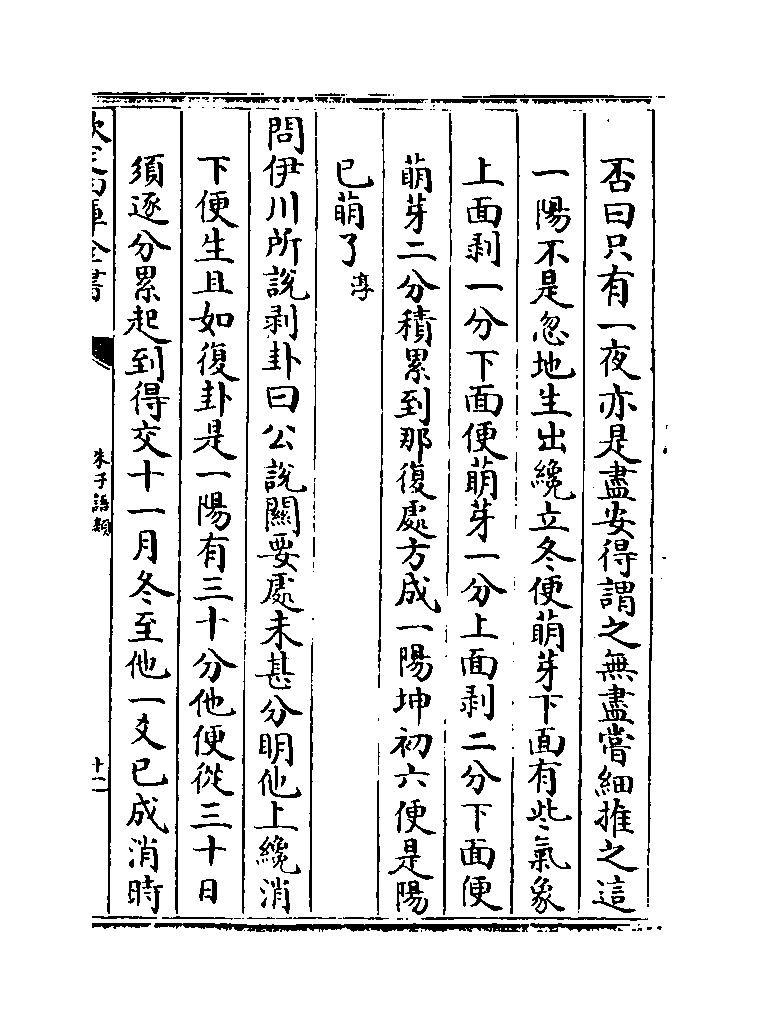 否曰只有一夜亦是盡安得謂之無盡嘗細推之這
一陽不是忽地生出纔立冬便萌芽下面有些氣象
上面剥一分下面便萌芽一分上面剥二分下面便
萌芽二分積累到那復處方成一陽坤初六便是陽
已萌了淳
問伊川所說剥卦曰公說關要處未甚分明他上纔消
下便生且如復卦是一陽有三十分他便從三十日
須逐分累起到得交十一月冬至他一爻已成消時
欽定四庫全書
朱子語類
十二